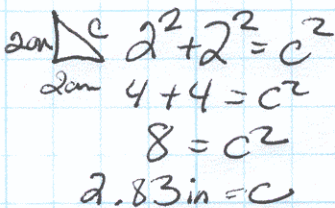 2cm c 2² + 2² = c²
2cm 4 + 4 = c²
8 = c²
2.83in = c